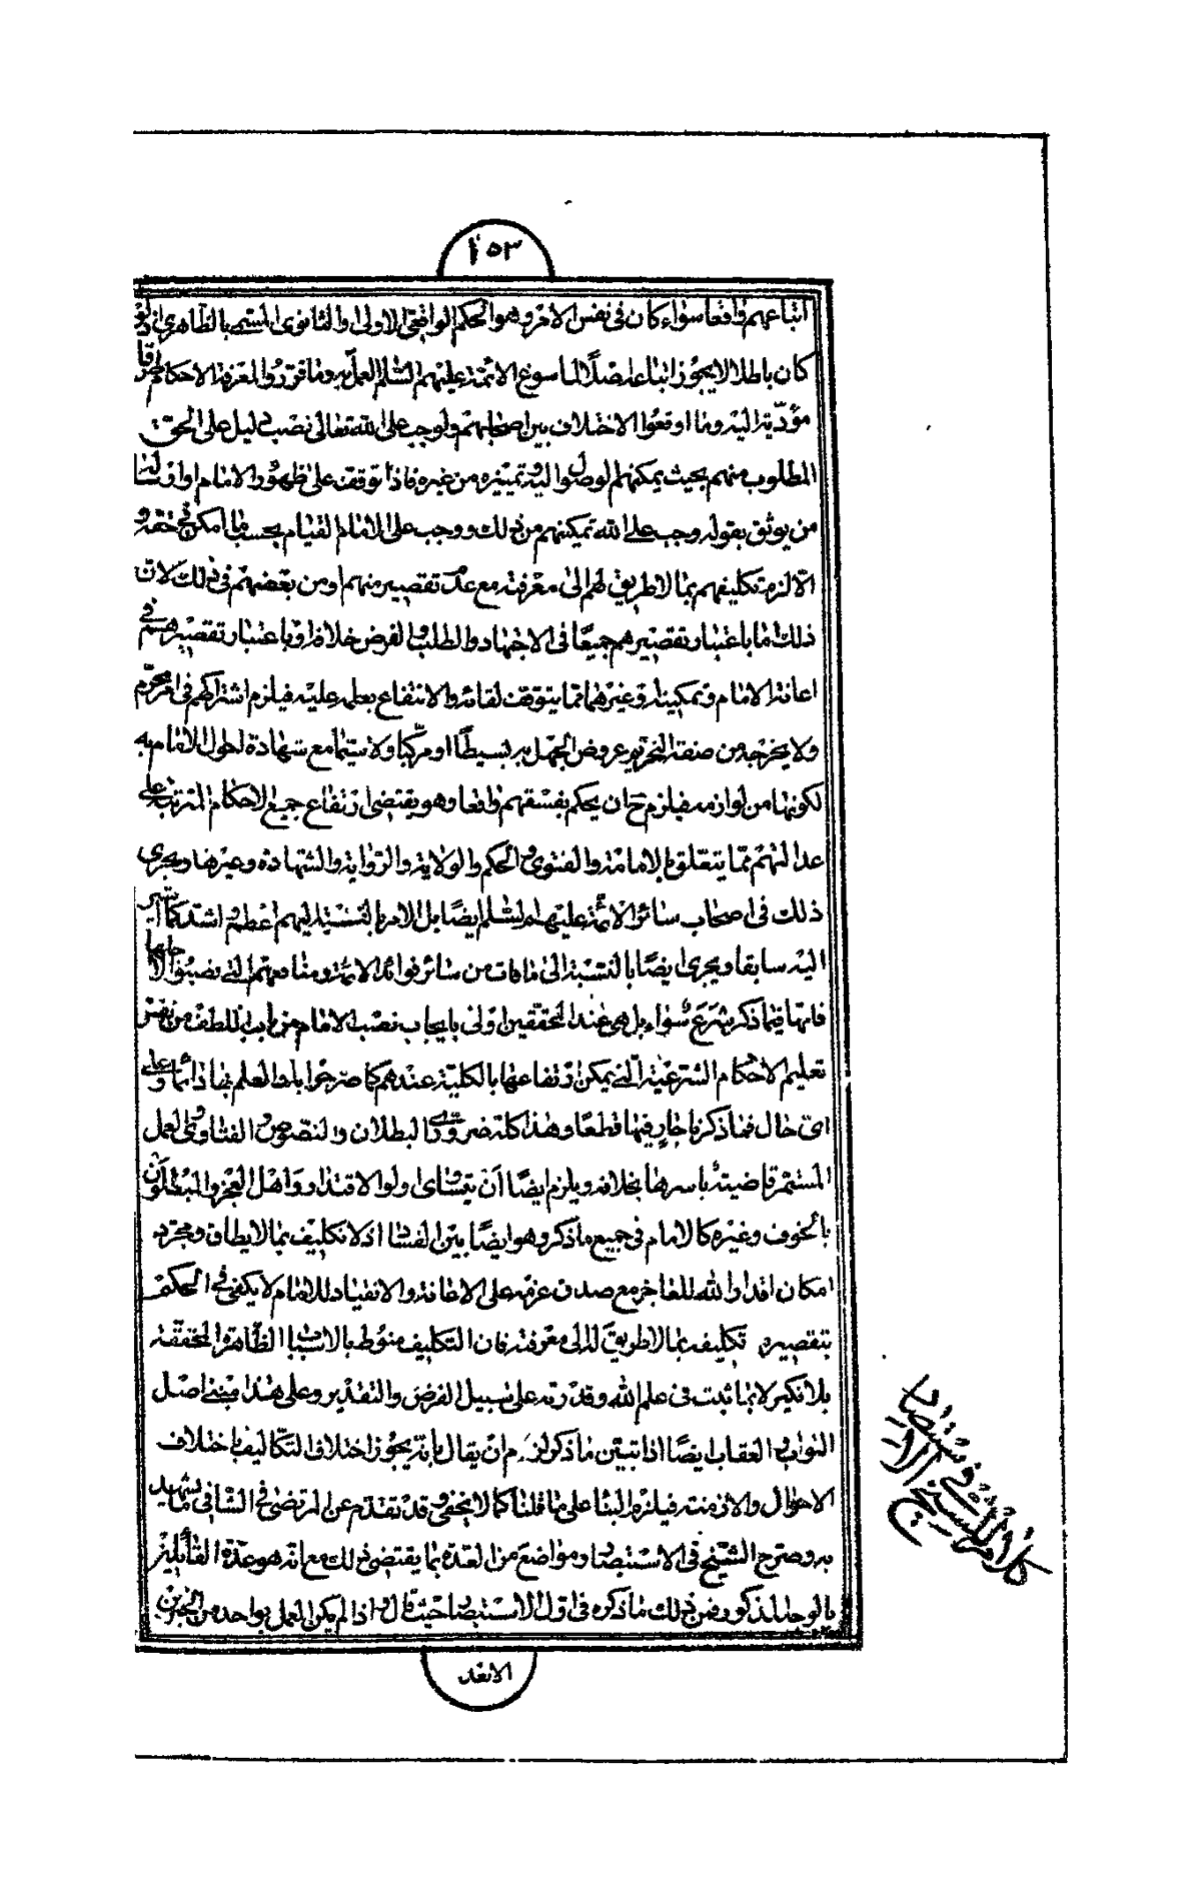 ١٥٣
اتباعهم واقعا سواء كان في نفس الامر وهو الحكم الواقعي الاولى او الثانوى المسمى بالظاهرى اذ لو
كان باطلا لا يجوز اتباعه اصلا لما سوغ الائمة عليهم السلم العمل به وما قرروا لمعرفة الاحكام طرقا
مؤدية اليه وما اوقعوا الاختلاف بين اصحابهم ولوجب على الله تعالى نصب دليل على الحق
المطلوب منهم بحيث يمكنهم الوصول اليه وتمييزه من غيره فاذا توقف على ظهور الامام او ارسال
من يوثق بقوله وجب على الله تمكينهم من ذلك ووجب على الامام القيام بحسب ما امكن في حقه و
الا لزم تكليفهم بما لا طريق لهم الى معرفته مع عدم تقصير منهم او من بعضهم في ذلك لان
ذلك اما باعتبار تقصيرهم جميعا في الاجتهاد والطلب والفرض خلافه او باعتبار تقصيرهم في
اعانة الامام وتمكينه وغيرهما مما يتوقف لقائه والانتفاع بعلمه عليه فيلزم اشتراكهم في امر محرم
ولا يخرجه من صفة التحريم عروض الجهل به بسيطا او مركبا ولا سيما مع شهادة احوال الامام به
لكونها من لوازمه فيلزم ح ان يحكم بفسقهم واقعا وهو يقتضى ارتفاع جميع الاحكام المترتبة على
عدالتهم مما يتعلق بالامامة والفتوى والحكم والولاية والرواية والشهادة وغيرها ويجرى
ذلك في اصحاب سائر الائمة عليهم السلم ايضا بل الامر بالنسبة اليهم اعظم واشد كما اشير
اليه سابقا ويجرى ايضا بالنسبة الى ما فات من سائر فوائد الائمة ومنافعهم التي نصبوا لاجلها
فانها فيما ذكر شرع سواء بل هي عند المحققين اولى بايجاب نصب الامام من باب اللطف من نفس
تعليم الاحكام الشرعية التي يمكن ارتفاعها بالكلية عندهم كما صرحوا به او العلم بها دائما وعلى
اى حال فما ذكرنا جار فيها قطعا وهذا كله ضرورى البطلان والنصوص والفتاوى والعمل
المستمر قاضية باسرها بخلافه ويلزم ايضا ان يتساوى اولوا الاقتدار واهل العجز والمبتلون
بالخوف وغيره كالامام في جميع ما ذكر وهو ايضا بين الفساد اذ لا تكليف بما لا يطاق ومجرد
امكان اقدار الله للعاجز مع صدق عزمه على الاعانة والانقياد للامام لا يكفي في الحكم
بتقصيره وتكليفه بما لا طريق له الى معرفته فان التكليف منوط بالاسباب الظاهرة المحققة
بلا نكير لا بما ثبت في علم الله وقدرته على سبيل الفرض والتقدير وعلى هذا مبنى اصل
الثواب والعقاب ايضا اذا تبين ما ذكر لزم ان يقال بانه يجوز اختلاف التكاليف باختلاف
الاحوال والازمنة فيلزم البناء على ما قلنا كما لا يخفى وقد تقدم عن المرتضى في الشافي ما يشهد
به وصرح الشيخ في الاستبصار ومواضع من العدة بما يقتضى ذلك مع انه هو عمدة القائلين
بالوجه المذكور فمن ذلك ما ذكره في اول الاستبصار حيث قال واذا لم يمكن العمل بواحد من الخبرين
الا بعد
كلام الشيخ في الاستبصار